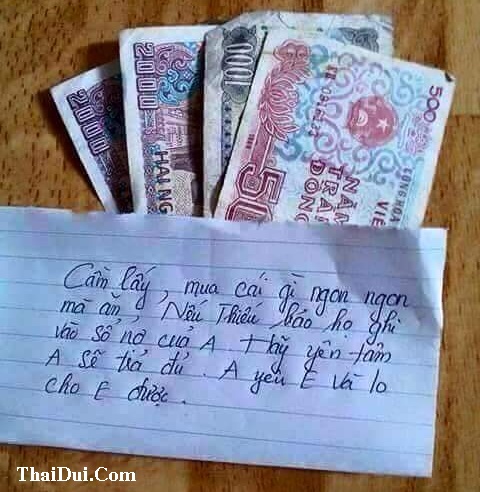 2000
2000
HAI NG
1000
500
CỘNG HOÀ
VIỆ
NĂM
TRĂM
ĐỒNG
50
Cầm lấy, mua cái gì ngon ngon
mà ăn, Nếu Thiếu báo họ ghi
vào sổ nợ của A. Hãy yên tâm
A sẽ trả đủ. A yêu E và lo
cho E được.
ThaiDui.Com